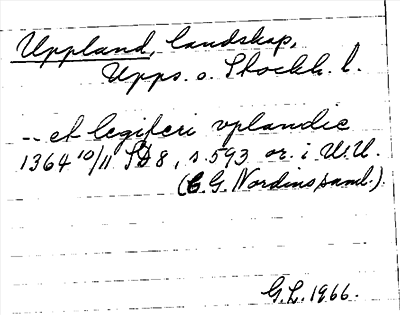 Uppland, landskap,
Upps. o. Stockh. l.
-- et legiferi vplandie
1364 10/11 SD 8, s. 593 or. i U.U.
(C.G. Nordins saml.).
G.L. 1966.